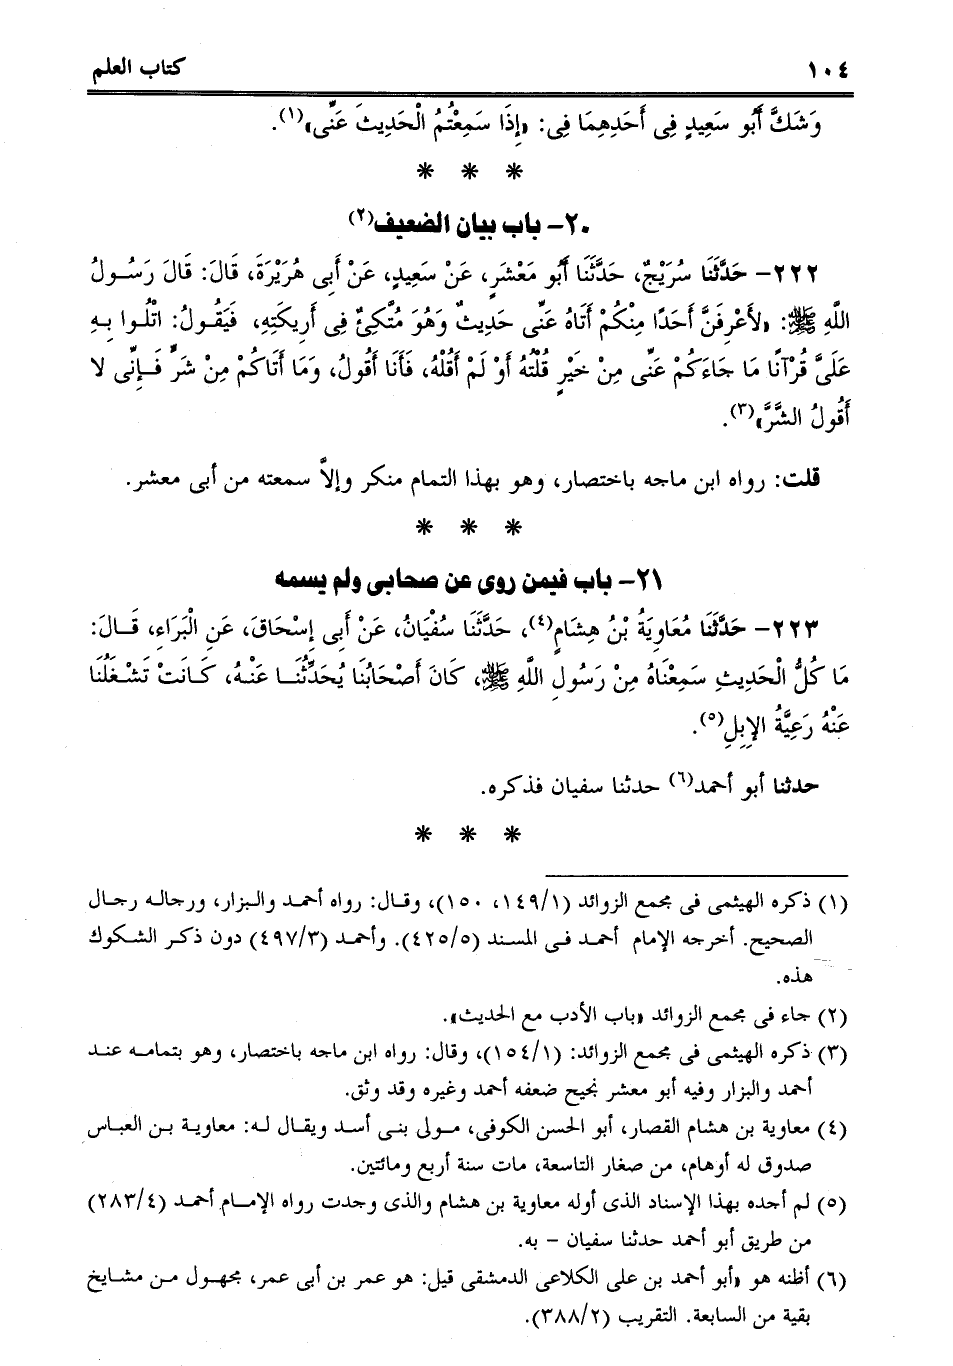 ١٠٤ كتاب العلم
وَشَكَّ أَبُو سَعِيدٍ فِى أَحَدِهِمَا فِى: «إِذَا سَمِعْتُمُ الْحَدِيثَ عَنِّى»(١).
* * *
٢٠- باب بيان الضعيف(٢)
٢٢٢- حَدَّثَنَا سُرَيْجٌ، حَدَّثَنَا أَبُو مَعْشَرٍ، عَنْ سَعِيدٍ، عَنْ أَبِى هُرَيْرَةَ، قَالَ: قَالَ رَسُولُ
اللَّهِ ﷺ: «لأَعْرِفَنَّ أَحَدًا مِنْكُمْ أَتَاهُ عَنِّى حَدِيثٌ وَهُوَ مُتَّكِئٌ فِى أَرِيكَتِهِ، فَيَقُولُ: اتْلُوا بِهِ
عَلَىَّ قُرْآنًا مَا جَاءَكُمْ عَنِّى مِنْ خَيْرٍ قُلْتُهُ أَوْ لَمْ أَقُلْهُ، فَأَنَا أَقُولُ، وَمَا أَتَاكُمْ مِنْ شَرٍّ فَإِنِّى لا
أَقُولُ الشَّرَّ»(٣).
قلت: رواه ابن ماجه باختصار، وهو بهذا التمام منكر وإلاَّ سمعته من أبى معشر.
* * *
٢١- باب فيمن روى عن صحابى ولم يسمه
٢٢٣- حَدَّثَنَا مُعَاوِيَةُ بْنُ هِشَامٍ(٤)، حَدَّثَنَا سُفْيَانُ، عَنْ أَبِى إِسْحَاقَ، عَنِ الْبَرَاءِ، قَالَ:
مَا كُلُّ الْحَدِيثِ سَمِعْنَاهُ مِنْ رَسُولِ اللَّهِ ﷺ، كَانَ أَصْحَابُنَا يُحَدِّثُنَا عَنْهُ، كَانَتْ تَشْغَلُنَا
عَنْهُ رَعِيَّةُ الإِبِلِ(٥).
حدثنا أبو أحمد(٦) حدثنا سفيان فذكره.
* * *
(١) ذكره الهيثمى فى مجمع الزوائد (١٤٩/١، ١٥٠)، وقال: رواه أحمد والبزار، ورجاله رجال
الصحيح. أخرجه الإمام أحمد فى المسند (٤٢٥/٥). وأحمد (٤٩٧/٣) دون ذكر الشكوك
هذه.
(٢) جاء فى مجمع الزوائد «باب الأدب مع الحديث».
(٣) ذكره الهيثمى فى مجمع الزوائد: (١٥٤/١)، وقال: رواه ابن ماجه باختصار، وهو بتمامه عند
أحمد والبزار وفيه أبو معشر نجيح ضعفه أحمد وغيره وقد وثق.
(٤) معاوية بن هشام القصار، أبو الحسن الكوفى، مولى بنى أسد ويقال له: معاوية بن العباس
صدوق له أوهام، من صغار التاسعة، مات سنة أربع ومائتين.
(٥) لم أجده بهذا الإسناد الذى أوله معاوية بن هشام والذى وجدت رواه الإمام أحمد (٢٨٣/٤)
من طريق أبو أحمد حدثنا سفيان - به.
(٦) أظنه هو «أبو أحمد بن على الكلاعى الدمشقى قيل: هو عمر بن أبى عمر، مجهول من مشايخ
بقية من السابعة. التقريب (٣٨٨/٢).